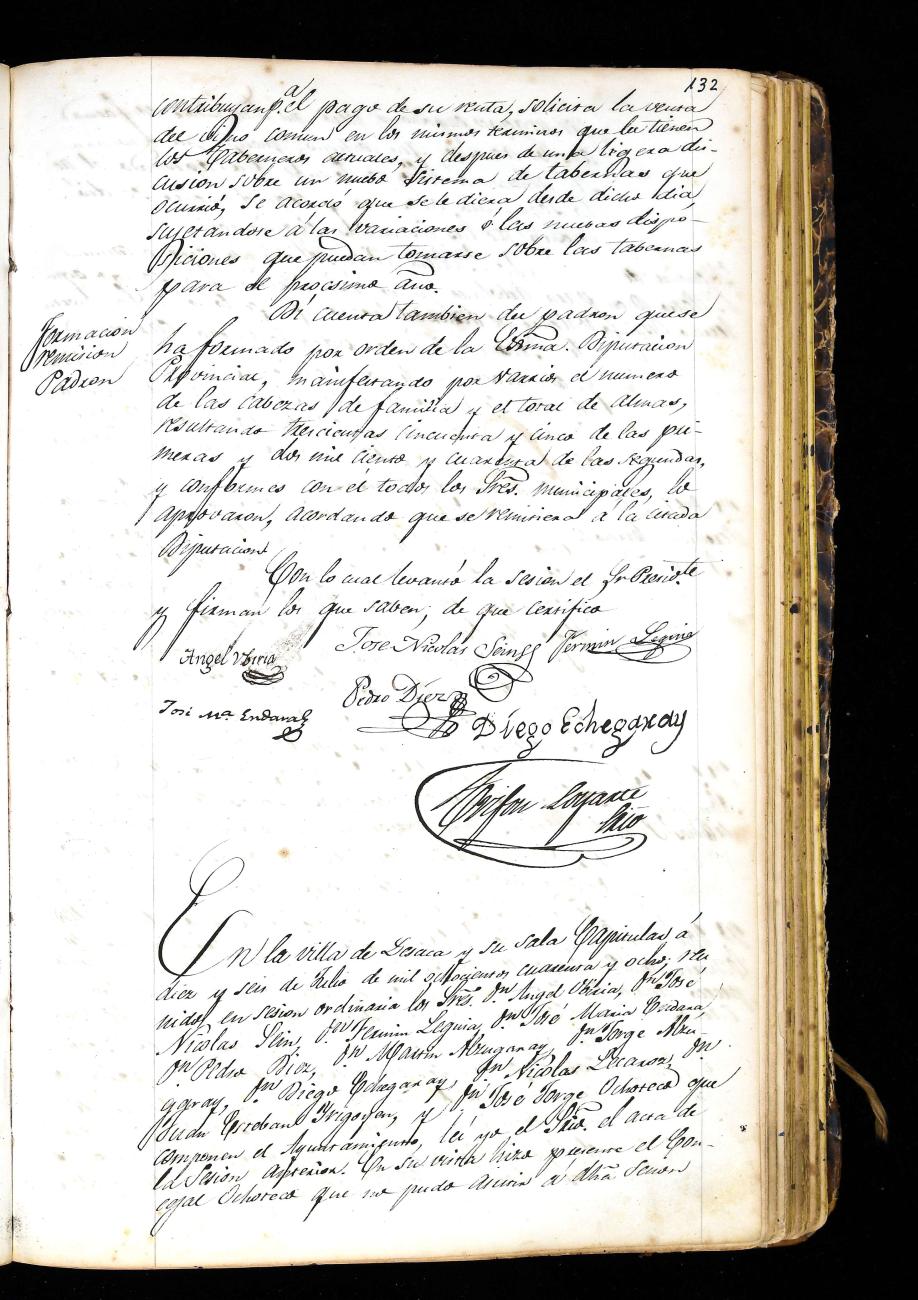 132
contribuyan p.ª el pago de su renta, solicita la venta
del Vino comun en los mismos terminos que la tienen
los Taberneros actuales, y despues de una ligera dis-
cusion sobre un nuebo sistema de tabernas que
ocurrió, se acordo que se le diera desde dicho dia
sujetandose á las variaciones ó las nuebas dispo-
siciones que puedan tomarse sobre las tabernas
para el procsimo año.
Formacion
remision
Padron
Di cuenta tambien del padron que se
ha formado por orden de la Exma. Diputacion
Provincial, manifestando por varrios el numero
de las cabezas de familia y el total de almas,
resultando trescientas cincuenta y cinco de las pri-
meras y dos mil ciento y cuarenta de las segundas,
y conformes con el todos los Sres. municipales, lo
aprovaron, acordando que se remitiera á la citada
Diputacion.
Con lo cual levantó la sesion el Sr. Presid.te
y firman los que saben, de que certifico
Jose Nicolas Seinss Fermin Leguia
Angel Ubiria
Pedro Diez
Josi Ma. Endara
Diego Echegaray
Loyarte
Srio
En la villa de Lesaca y su sala Capitular á
diez y seis de Julio de mil ochocientos cuarenta y ocho, reu
nidos en sesion ordinaria los Sres. Dn. Angel Ubiria, Dn. José
Nicolas Sein, Dn. Fermin Leguia, Dn. José Maria Endara,
Dn. Pedro Diez, Dn. Martin Alzugaray, Dn. Jorge Alzu-
garay, Dn. Diego Echegaray, Dn. Nicolas Lecaroz, Dn.
Juan Esteban Yrigoyen, y Dn. José Jorge Ochoteco que
componen el Ayuntamiento, leí yo el Srio. el acta de
la Sesion anterior. En su vista hizo presente el Con-
cejal Ochoteco que no pudo asistir á dha. Sesion